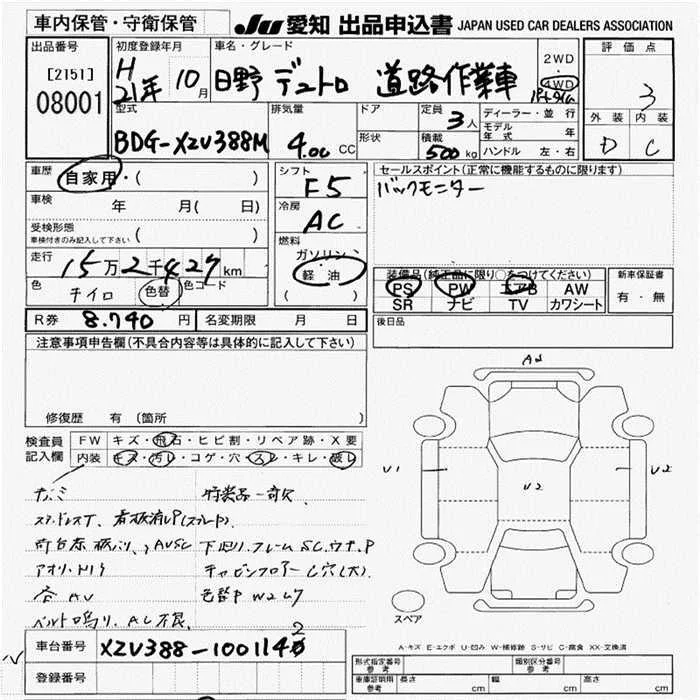 車内保管・守衛保管
JU 愛知 出品申込書 JAPAN USED CAR DEALERS ASSOCIATION
出品番号
[2151]
08001
初度登録年月
H 21年 10月
車名・グレード
日野 デュトロ 道路作業車
2WD
・
4WD
パートタイム
評価点
3
外装 内装
D C
型式
BDG-XZV388M
排気量
4.00 CC
ドア
形状
定員
3人
積載
500 kg
ディーラー・並行
モデル年式 年
ハンドル 左・右
車歴
自家用・( )
車検
年 月( 日)
受検形態
車検付きのみ記入して下さい ( )
走行
15万2千427km
色
チイロ
色替
色コード
シフト
F5
冷房
AC
燃料
ガソリン
軽油
( )
セールスポイント(正常に機能するものに限ります)
バックモニター
装備品(純正品に限り○をつけてください)
PS PW エアB AW
SR ナビ TV カワシート
新車保証書
有・無
R券 8.740 円
名変期限 月 日
後日品
注意事項申告欄(不具合内容等は具体的に記入して下さい)
修復歴 有 (箇所 )
検査員記入欄
FW キズ・飛石・ヒビ割・リペア跡・X要
内装 キズ・汚レ・コゲ・穴・スレ・キレ・破レ
キャビンフロアーC穴(大)
色替P W2 U7
ベルト鳴り、AC不良
A4
U1
U2
U2
スペア
A-キズ E-エクボ U-凹み W-補修跡 S-サビ C-腐食 XX-交換済
車台番号 XZV388-1001142
登録番号
形式指定番号
参考
類別区分番号
参考
車庫証明用
参考
長さ cm
幅 cm
高さ cm